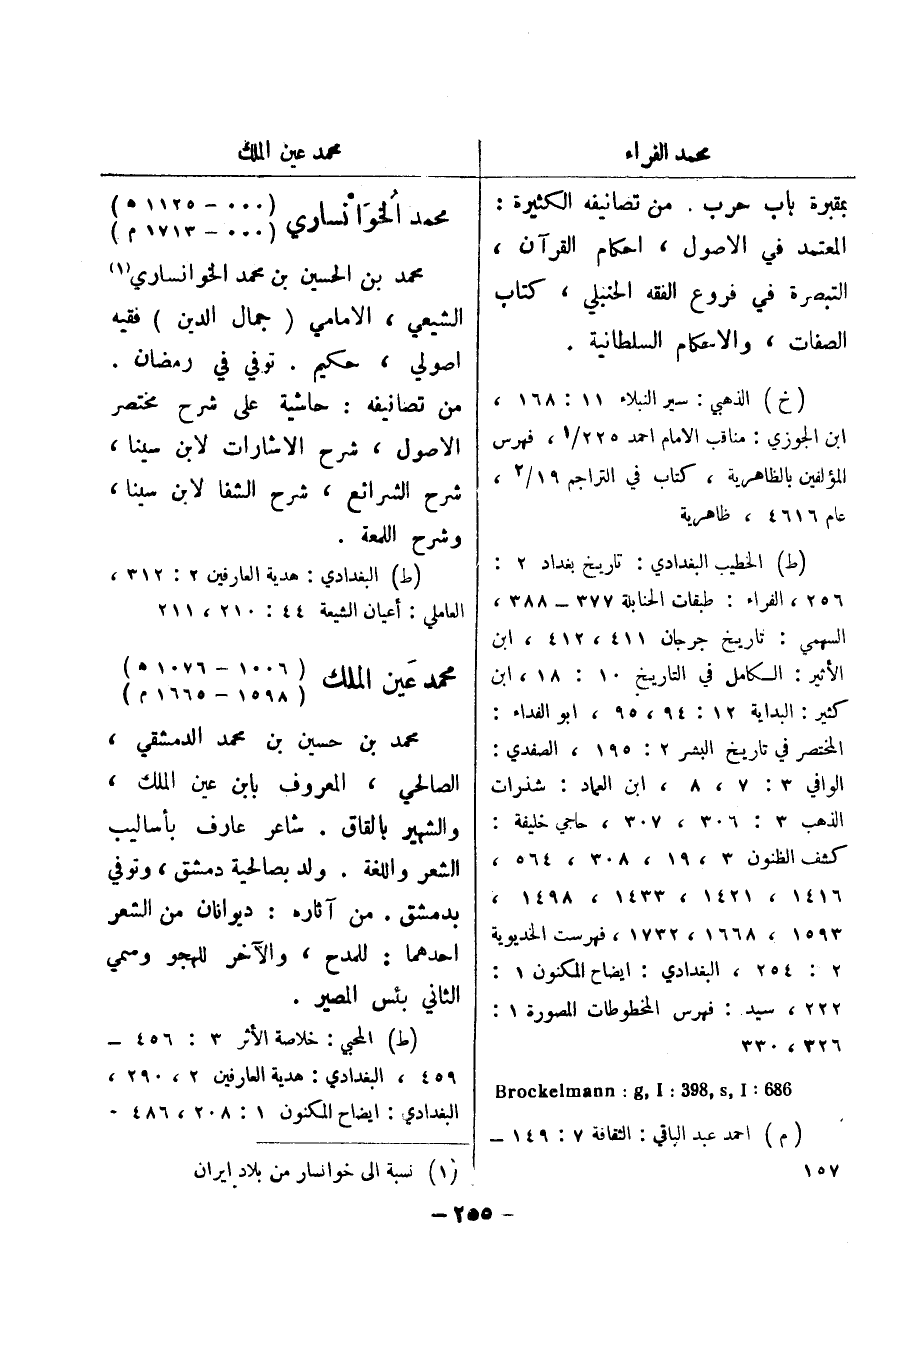 محمد الفراء
بمقبرة باب حرب . من تصانيفه الكثيرة :
المعتمد في الاصول ، احكام القرآن ،
التبصرة في فروع الفقه الحنبلي ، كتاب
الصفات ، والاحكام السلطانية .
( خ ) الذهبي : سير النبلاء ١١ : ١٦٨ ،
ابن الجوزي : مناقب الامام احمد ١/٢٢٥ ، فهرس
المؤلفين بالظاهرية ، كتاب في التراجم ٢/١٩ ،
عام ٤٦١٦ ، ظاهرية
(ط) الخطيب البغدادي : تاريخ بغداد ٢ :
٢٥٦ ، الفراء : طبقات الحنابلة ٣٧٧ – ٣٨٨ ،
السهمي : تاريخ جرجان ٤١١ ، ٤١٢ ، ابن
الأثير : الكامل في التاريخ ١٠ : ١٨ ، ابن
كثير : البداية ١٢ : ٩٤ ، ٩٥ ، ابو الفداء :
المختصر في تاريخ البشر ٢ : ١٩٥ ، الصفدي :
الوافي ٣ : ٧ ، ٨ ، ابن العماد : شذرات
الذهب ٣ : ٣٠٦ ، ٣٠٧ ، حاجي خليفة :
كشف الظنون ٣ ، ١٩ ، ٣٠٨ ، ٥٦٤ ،
١٤١٦ ، ١٤٢١ ، ١٤٣٣ ، ١٤٩٨ ،
١٥٩٣ ، ١٦٦٨ ، ١٧٣٢ ، فهرست الخديوية
٢ : ٢٥٤ ، البغدادي : ايضاح المكنون ١ :
٢٢٢ ، سيد : فهرس المخطوطات المصورة ١ :
٣٢٦ ، ٣٣٠
Brockelmann : g, I : 398, s, I : 686
( م ) احمد عبد الباقي : الثقافة ٧ : ١٤٩ –
١٥٧
محمد عين الملك
محمد الخوانساري ( ٠٠٠ – ١١٢٥ ه )
( ٠٠٠ – ١٧١٣ م )
محمد بن الحسين بن محمد الخوانساري(١)
الشيعي ، الامامي ( جمال الدين ) فقيه
اصولي ، حكيم . توفي في رمضان .
من تصانيفه : حاشية على شرح مختصر
الاصول ، شرح الاشارات لابن سينا ،
شرح الشرائع ، شرح الشفا لابن سينا ،
وشرح اللمعة .
(ط) البغدادي : هدية العارفين ٢ : ٣١٢ ،
العاملي : أعيان الشيعة ٤٤ : ٢١٠ ، ٢١١
محمد عَين الملك ( ١٠٠٦ – ١٠٧٦ ه )
( ١٥٩٨ – ١٦٦٥ م )
محمد بن حسين بن محمد الدمشقي ،
الصالحي ، المعروف بابن عين الملك ،
والشهير بالقاق . شاعر عارف بأساليب
الشعر واللغة . ولد بصالحية دمشق ، وتوفي
بدمشق . من آثاره : ديوانان من الشعر
احدهما : للمدح ، والآخر للهجو وسمي
الثاني بئس المصير .
(ط) المحبي : خلاصة الأثر ٣ : ٤٥٦ –
٤٥٩ ، البغدادي : هدية العارفين ٢ ، ٢٩٠ ،
البغدادي : ايضاح المكنون ١ : ٢٠٨ ، ٤٨٦ .
(١) نسبة الى خوانسار من بلاد ايران
– ٢٥٥ –